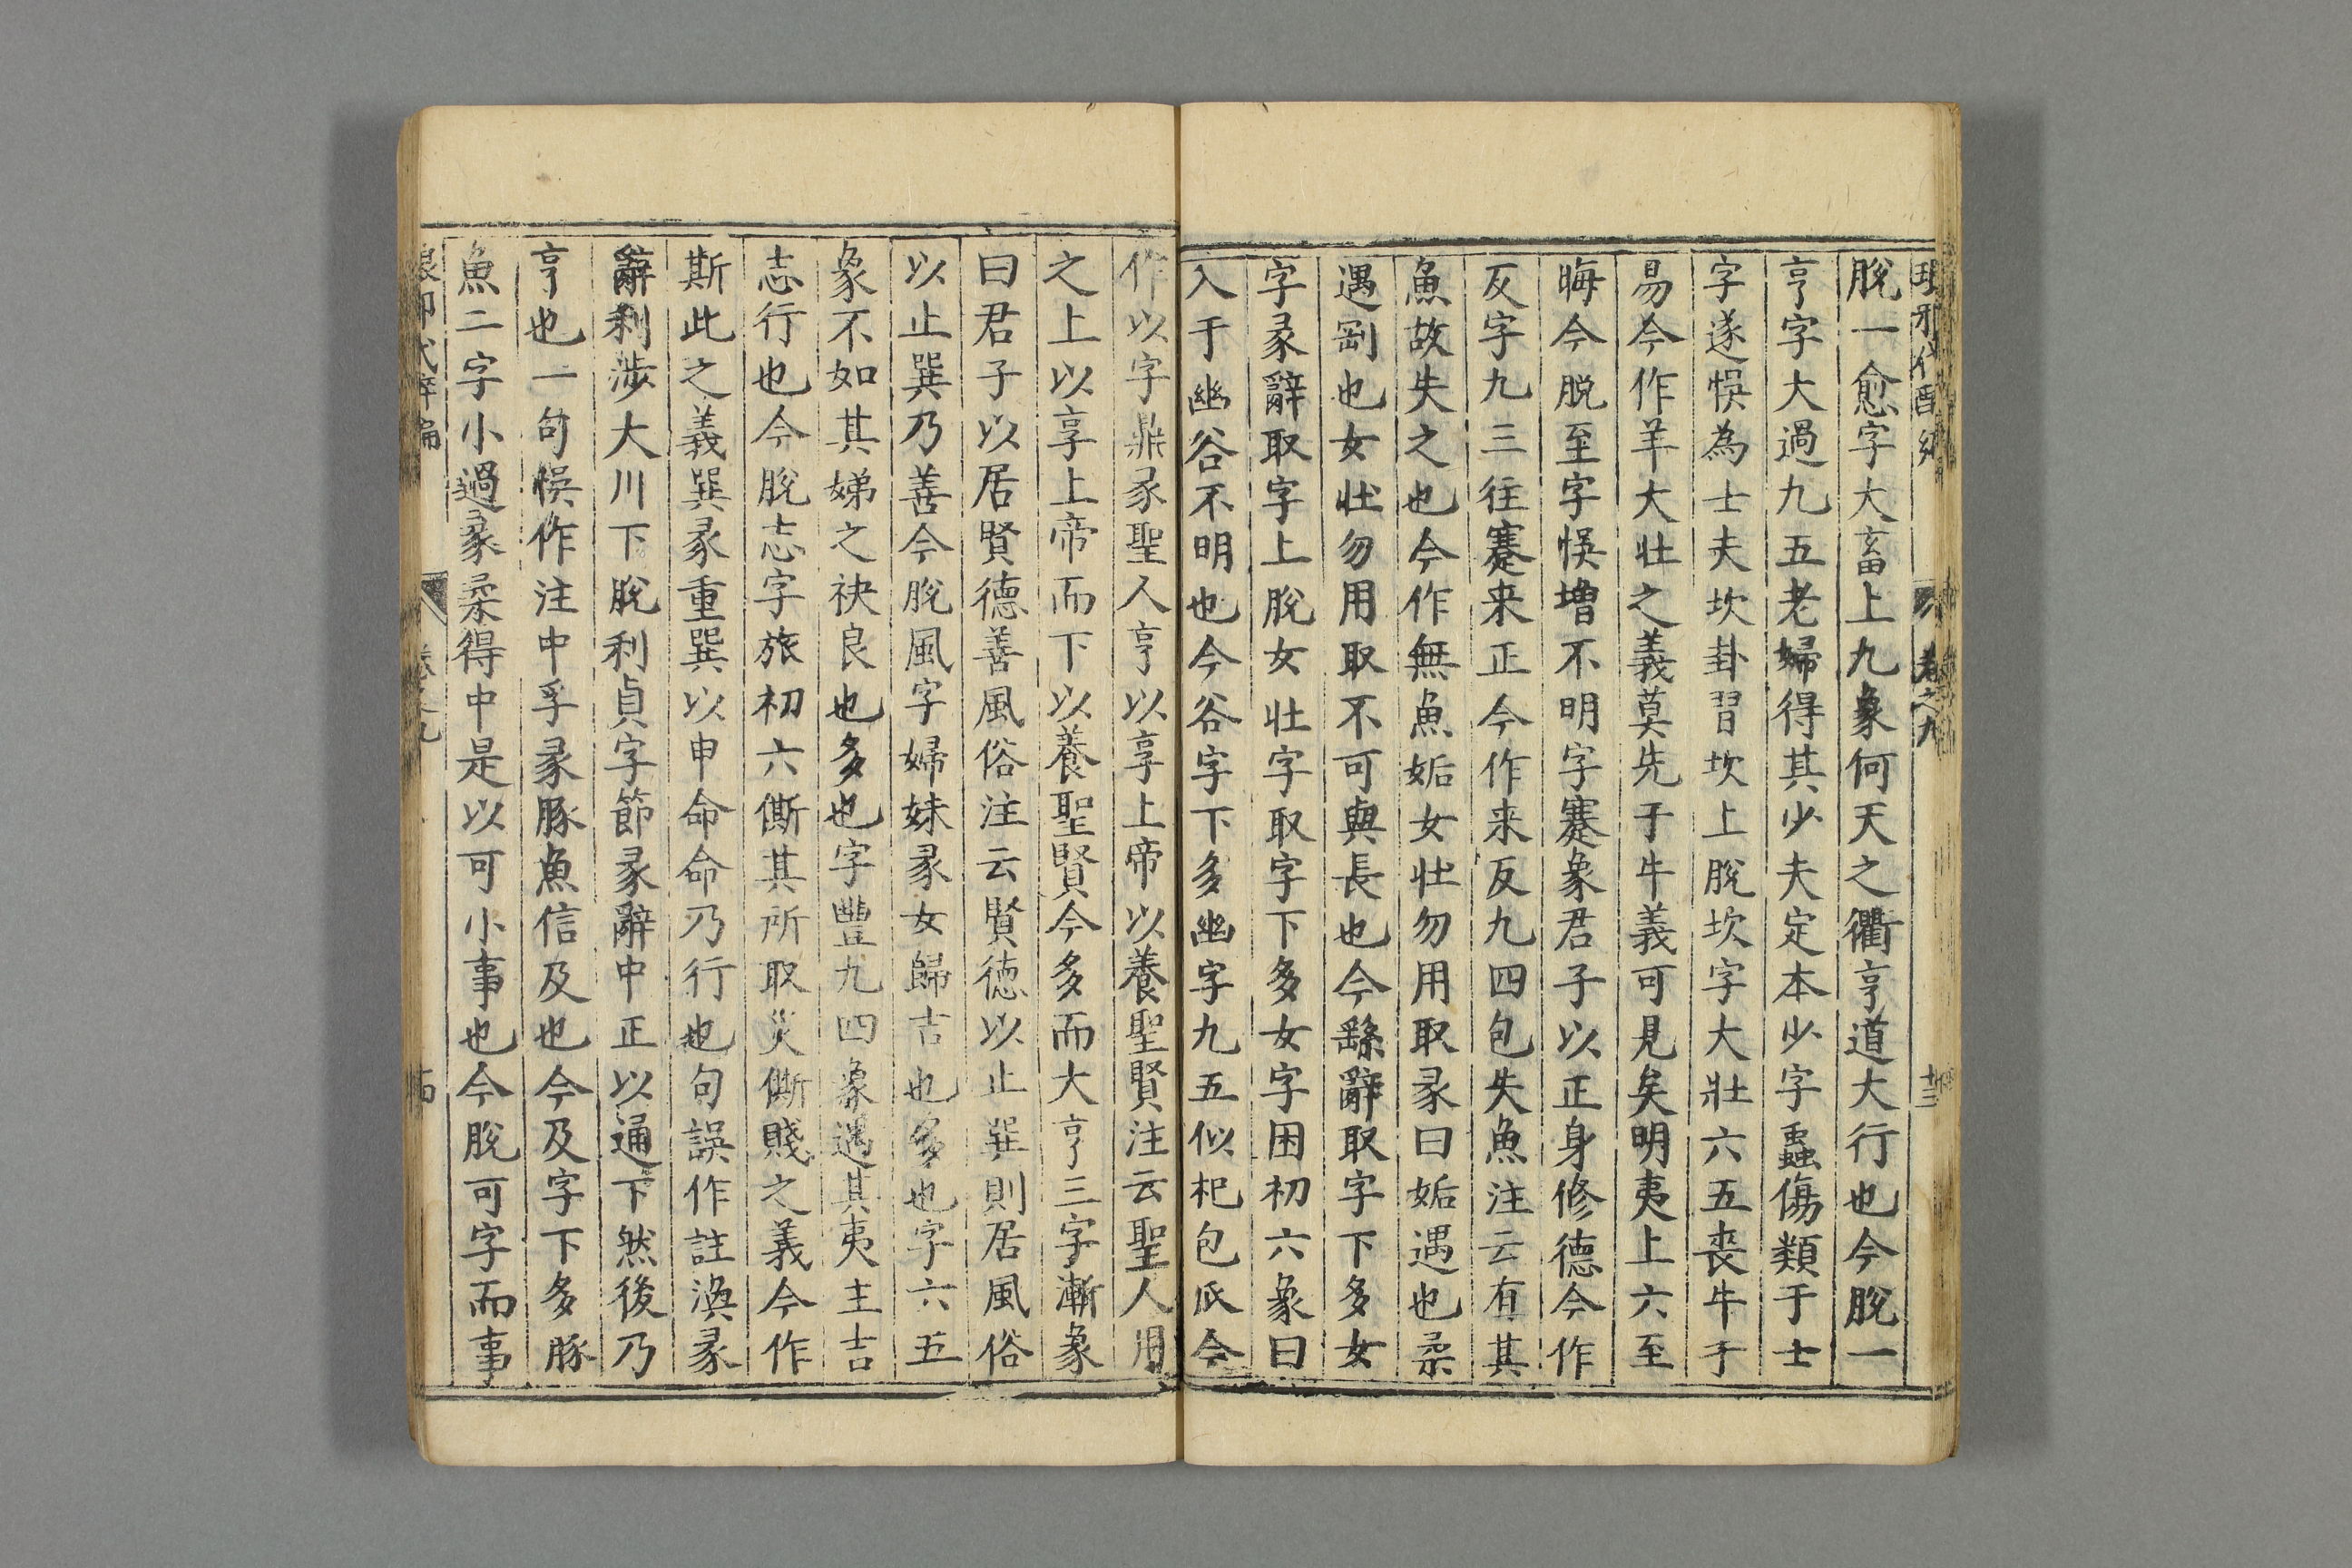 脫一愈字大畜上九象何天之衢亨道大行也今脫一
亨字大過九五老婦得其少夫定本少字蠱傷類于士
字遂悞為士夫坎卦習坎上脫坎字大壯六五喪牛于
易今作羊大壯之義莫先于牛義可見矣明夷上六至
晦今脫至字悞增不明字蹇象君子以正身修德今作
反字九三往蹇来正今作来反九四包失魚注云有其
魚故失之也今作無魚姤女壯勿用取彖曰姤遇也柔
遇剛也女壯勿用取不可與長也今繇辭取字下多女
字彖辭取字上脫女壯字取字下多女字困初六象曰
入于幽谷不明也今谷字下多幽字九五似杞包瓜今
作以字鼎彖聖人亨以享上帝以養聖賢注云聖人用
之上以享上帝而下以養聖賢今多而大亨三字漸象
曰君子以居賢德善風俗注云賢德以止巽則居風俗
以止巽乃善今脫風字婦妹彖女歸吉也多也字六五
象不如其娣之袂良也多也字豐九四象遇其夷主吉
志行也今脫志字旅初六㒋其所取災㒋賤之義今作
斯此之義巽彖重巽以申命命乃行也句誤作註渙彖
辭利涉大川下脫利貞字節彖辭中正以通下然後乃
亨也一句悞作注中孚彖豚魚信及也今及字下多豚
魚二字小過彖柔得中是以可小事也今脫可字而事
卷之九
十三